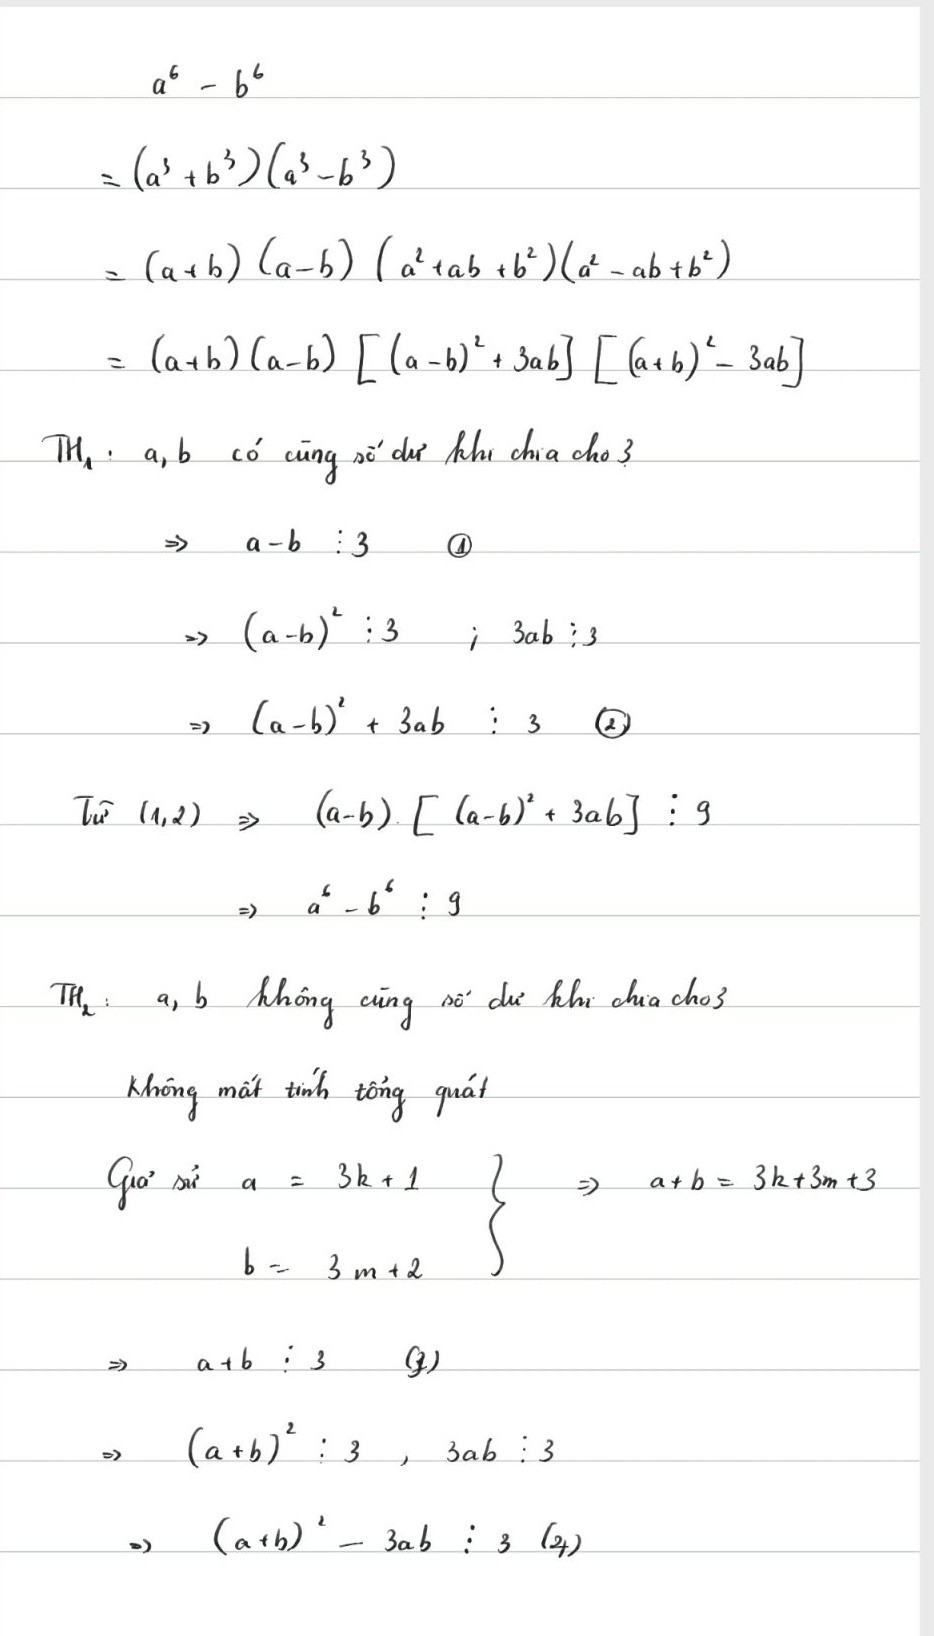 a⁶ - b⁶
= (a³ + b³)(a³ - b³)
= (a+b) (a-b) (a² + ab + b²)(a² - ab + b²)
= (a+b)(a-b) [(a-b)² + 3ab] [(a+b)² - 3ab]
TH₁ : a, b có cùng số dư khi chia cho 3
=> a-b ⋮ 3 ①
=> (a-b)² ⋮ 3 ; 3ab ⋮ 3
=> (a-b)² + 3ab ⋮ 3 ②
Từ (1,2) => (a-b). [(a-b)² + 3ab] ⋮ 9
=> a⁶ - b⁶ ⋮ 9
TH₂ : a, b không cùng số dư khi chia cho 3
Không mất tính tổng quát
Giả sử a = 3k + 1 } => a+b = 3k+3m+3
b = 3m+2
=> a+b ⋮ 3 (3)
=> (a+b)² ⋮ 3 , 3ab ⋮ 3
=> (a+b)² - 3ab ⋮ 3 (4)